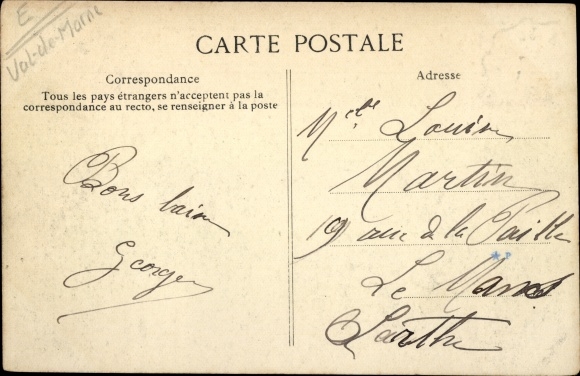 E
Val-de-Marne
CARTE POSTALE
Correspondance
Tous les pays étrangers n'acceptent pas la
correspondance au recto, se renseigner à la poste
Bons baisers
Georges
Adresse
Melle Louise
Martin
19 rue de la Paille
Le Mans
Sarthe